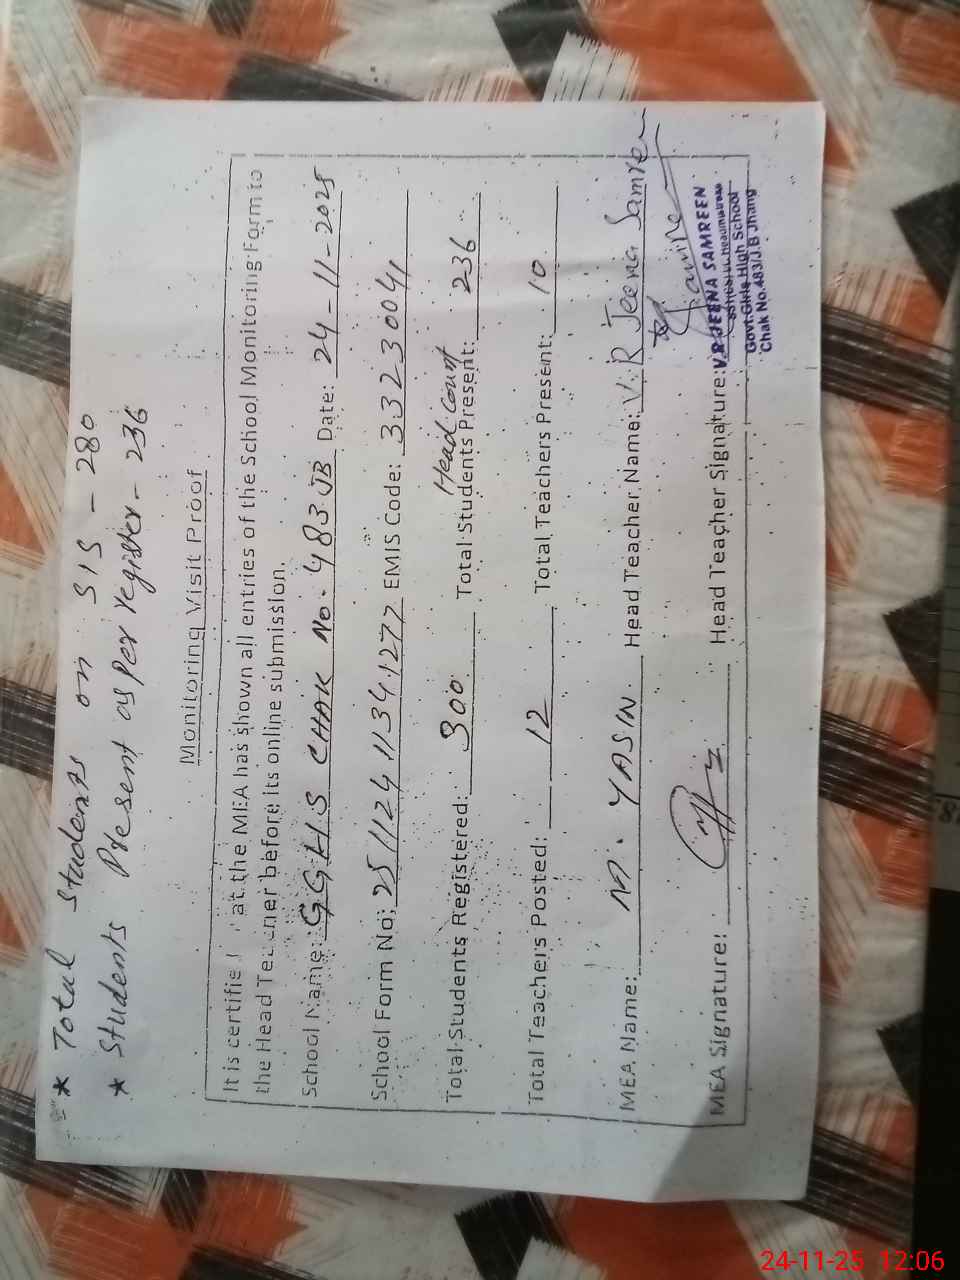 * Total Students on SIS - 280
* Students Present as per register - 236
Monitoring Visit Proof
It is certified that the MEA has shown all entries of the School Monitoring Form to
the Head Teacher before its online submission.
School Name: GGHS CHAK No. 483 JB Date: 24-11-2025
School Form No: EMIS Code: 33230041
Head Count
Total Students Registered: 300 Total Students Present: 236
Total Teachers Posted: 12 Total Teachers Present: 10
MEA Name: M. YASIN Head Teacher Name: V. R Jeena Samre
MEA Signature: Head Teacher Signature:
V.R JEENA SAMREEN
Govt.Girls High School
Chak No.483/J.B Jhang
24-11-25 12:06